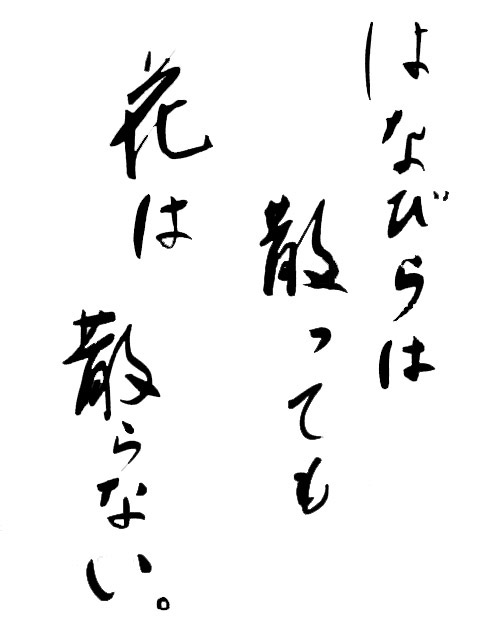 はなびらは
散っても
花は
散らない。